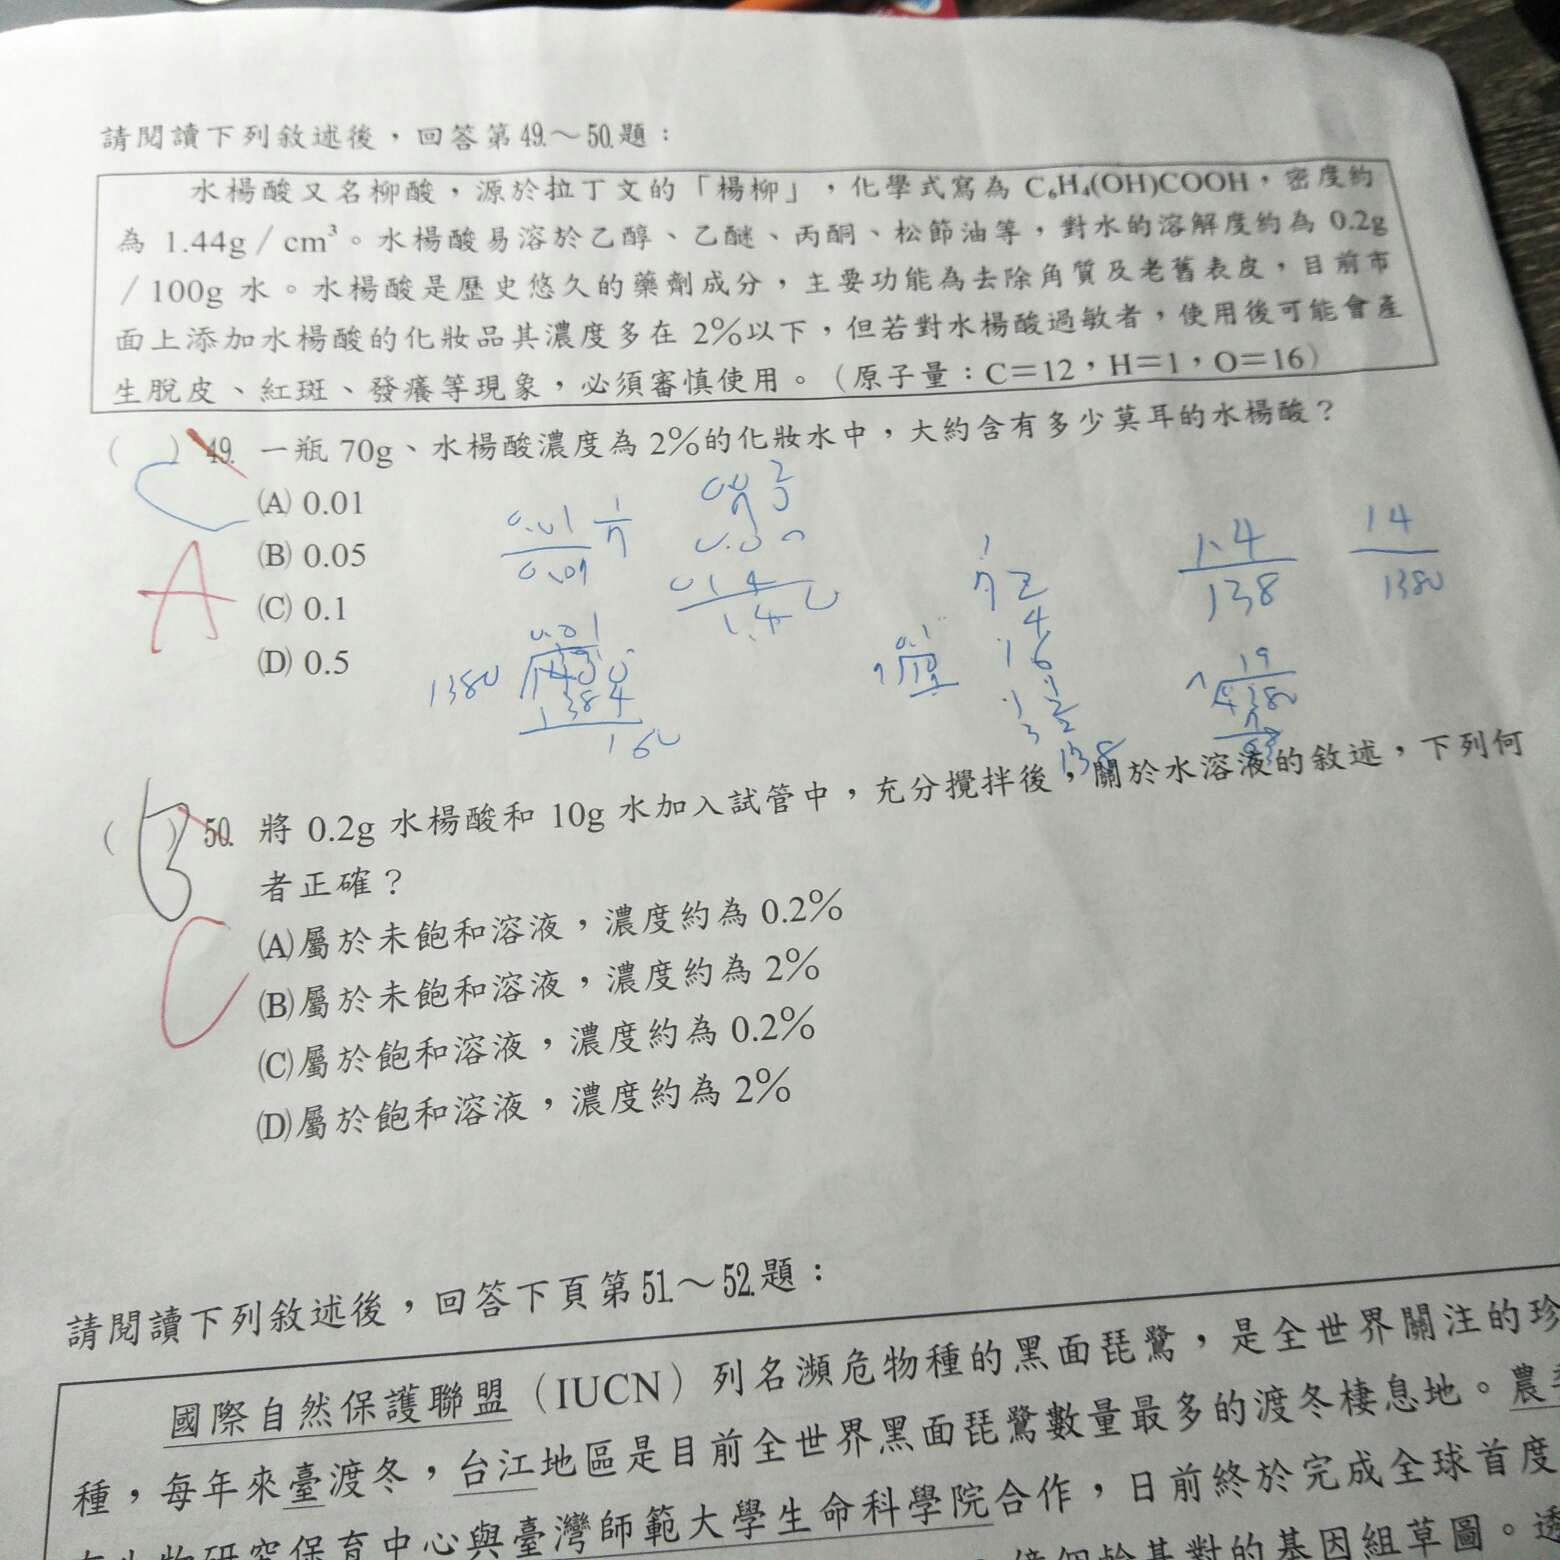 請閱讀下列敘述後，回答第49.～50.題：
水楊酸又名柳酸，源於拉丁文的「楊柳」，化學式寫為 C₆H₄(OH)COOH，密度約
為 1.44g／cm³。水楊酸易溶於乙醇、乙醚、丙酮、松節油等，對水的溶解度約為 0.2g
／100g 水。水楊酸是歷史悠久的藥劑成分，主要功能為去除角質及老舊表皮，目前市
面上添加水楊酸的化妝品其濃度多在 2％以下，但若對水楊酸過敏者，使用後可能會產
生脫皮、紅斑、發癢等現象，必須審慎使用。（原子量：C＝12，H＝1，O＝16）
（ ）49. 一瓶 70g、水楊酸濃度為 2％的化妝水中，大約含有多少莫耳的水楊酸？
C
A
(A) 0.01
(B) 0.05
(C) 0.1
(D) 0.5
1.4
138
14
1380
138
（ ）50. 將 0.2g 水楊酸和 10g 水加入試管中，充分攪拌後，關於水溶液的敘述，下列何
者正確？
B
C
(A)屬於未飽和溶液，濃度約為 0.2％
(B)屬於未飽和溶液，濃度約為 2％
(C)屬於飽和溶液，濃度約為 0.2％
(D)屬於飽和溶液，濃度約為 2％
請閱讀下列敘述後，回答下頁第51.～52.題：
國際自然保護聯盟（IUCN）列名瀕危物種的黑面琵鷺，是全世界關注的珍
種，每年來臺渡冬，台江地區是目前全世界黑面琵鷺數量最多的渡冬棲息地。農
生物研究保育中心與臺灣師範大學生命科學院合作，日前終於完成全球首度
億個鹼基對的基因組草圖。透